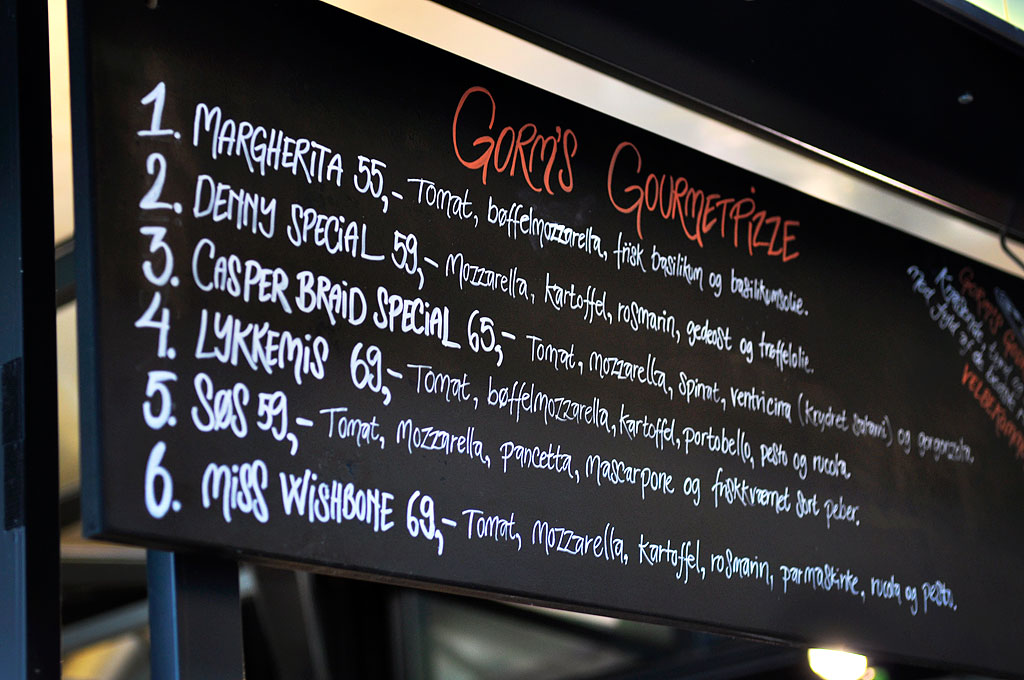 GORM'S GOURMETPIZZE
1. MARGHERITA 55,- Tomat, bøffelmozzarella, frisk basilikum og basilikumsolie.
2. DENNY SPECIAL 59,- Mozzarella, kartoffel, rosmarin, gedeost og trøffelolie.
3. CASPER BRAID SPECIAL 65,- Tomat, mozzarella, spinat, ventricina (krydret salami) og gorgonzola.
4. LYKKEMIS 69,- Tomat, bøffelmozzarella, kartoffel, portobello, pesto og rucola.
5. SØS 59,- Tomat, mozzarella, pancetta, mascarpone og friskkværnet sort peber.
6. MISS WISHBONE 69,- Tomat, mozzarella, kartoffel, rosmarin, parmaskinke, rucola og pesto.
GORM'S